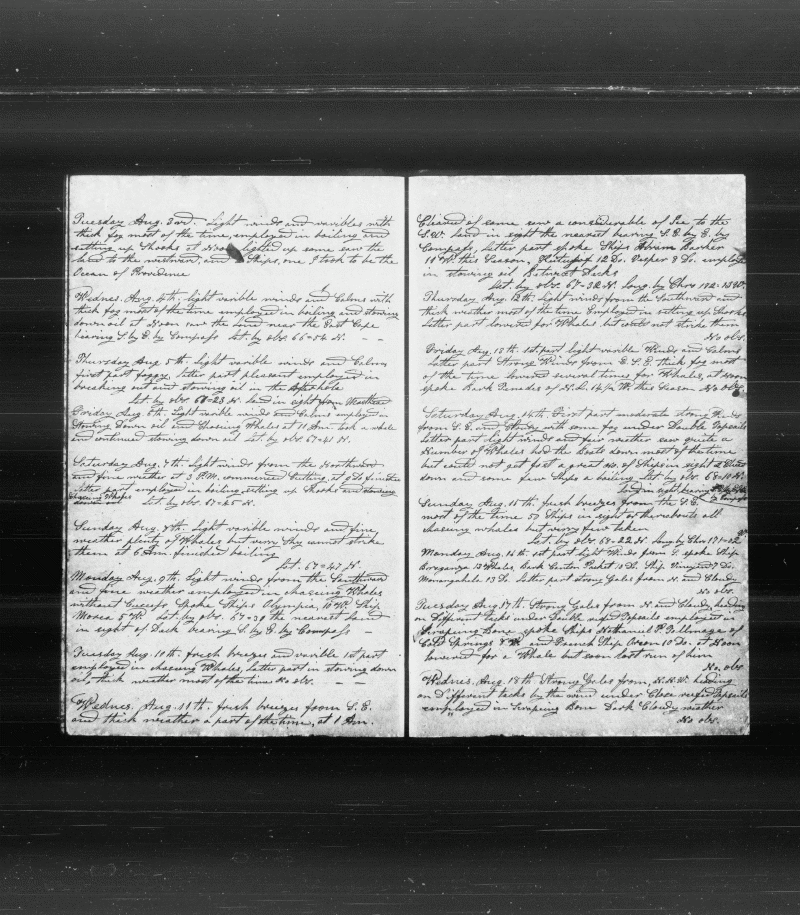 Tuesday Aug. 3rd. Light winds and varibles with
thick fog most of the time, employed in boiling and
setting up Shooks at Noon lighted up some saw the
land to the westward, and Ships, one I took to be the
Ocean of Providence
Wednes. Aug. 4th. light varible winds and Calms with
thick fog most of the time employed in boiling and stowing
down oil at Noon saw the land near the East Cape
bearing S. by E. by Compass Lat. by obs. 66=54 N.
Thursday Aug. 5th. Light varible winds and Calms
first part foggy, latter part pleasent employed in
breaking out and stowing oil in the Afterhole
Lat. by obs. 66=23 N. land in sight from Masthead
Friday Aug. 6th. Light varible winds and Calms employed in
Stowing Down oil and Chasing Whales at 11 Am. took a whale
and continued stowing down oil Lat. by obs. 67=41 N.
Saturday Aug. 7th. Light winds from the Northward
and fine weather at 3 P.M. commenced Cutting, at 9 do finished
latter part employed in boiling, setting up Shooks and stowing
down oil Chasing Whales Lat. by obs. 67=25 N.
Sunday Aug. 8th. Light varible winds and fine
weather plenty of Whales but very Shy cannot strike
them at 6 Am. finished boiling
Lat. 67=47 N.
Monday Aug. 9th. Light winds from the Southward
and fine weather employed in chasing Whales
without Success Spoke Ships Olympia, 10 W. Ship
Morea 5 W. Lat. by obs. 67=30 the nearest land
in sight of Deck bearing S. by E. by Compass
Tuesday Aug. 10th. fresh breezes and varible 1st part
employed in chasing Whales, latter part in stowing down
oil, thick weather most of the time No obs.
Wednes. Aug. 11th. fresh breezes from S. E.
and thick weather a part of the time, at 1 Am.
Cleared of some saw a considerable of Ice to the
S.W. land in sight the nearest bearing S. E. by E. by
Compass, latter part spoke Ships Abram Barker
11 W. this Season, 12 Do. Vesper 8 Do. employed
in stowing oil Betwixt Decks
Lat. by obs. 67=32 N. Long. by Chro 172=13 W.
Thursday Aug. 12th. Light winds from the Southward and
thick weather most of the time Employed in setting up Shooks
Latter part lowered for Whales but could not strike them
No obs.
Friday Aug. 13th. 1st part light varible Winds and Calms
Latter part Strong Winds from E. S. E. thick fog most
of the time lowered several times for Whales, at Noon
spoke Bark Pantheon of N. L. 14 W. this Season No obs.
Saturday Aug. 14th. First part moderate strong Winds
from S. E. and Steady with some fog under Double Topsails
latter part light winds and fair weather saw quite a
Number of Whales had the Boats down most of the time
but could not get fast a great No. of Ships in sight
down and some few Ships a boiling Lat. by obs. 68=10 N.
Land in sight bearing
Sunday Aug. 15th. fresh breezes from the S. E.
most of the time 50 Ships in sight or thereabouts all
chasing whales but very few taken
Lat. by obs. 69=22 N. Long. by Chro 171=52
Monday Aug. 16th. 1st part light Winds from S. spoke Ship
Braganza 13 Whales, Bark Center Packet 10 Do. Ship Vineyard 7 Do.
Monongahela 13 Do. latter part strong Gales from N. and Cloudy
No obs.
Tuesday Aug. 17th. Strong Gales from N. and Cloudy, heading
on Different Tacks under Double reefed Topsails employed in
Scrapeing Bone, spoke Ships Nathaniel P. Tallmage of
Cold Springs 8 W. and French Ship Ocean 10 Do. at Noon
lowered for a Whale but soon lost run of him
No obs.
Wednes. Aug. 18th. Strong Gales from N.N.W. heading
on Different tacks by the wind under Close reefed Topsails
employed in Scrapeing Bone Dark Cloudy weather
No obs.